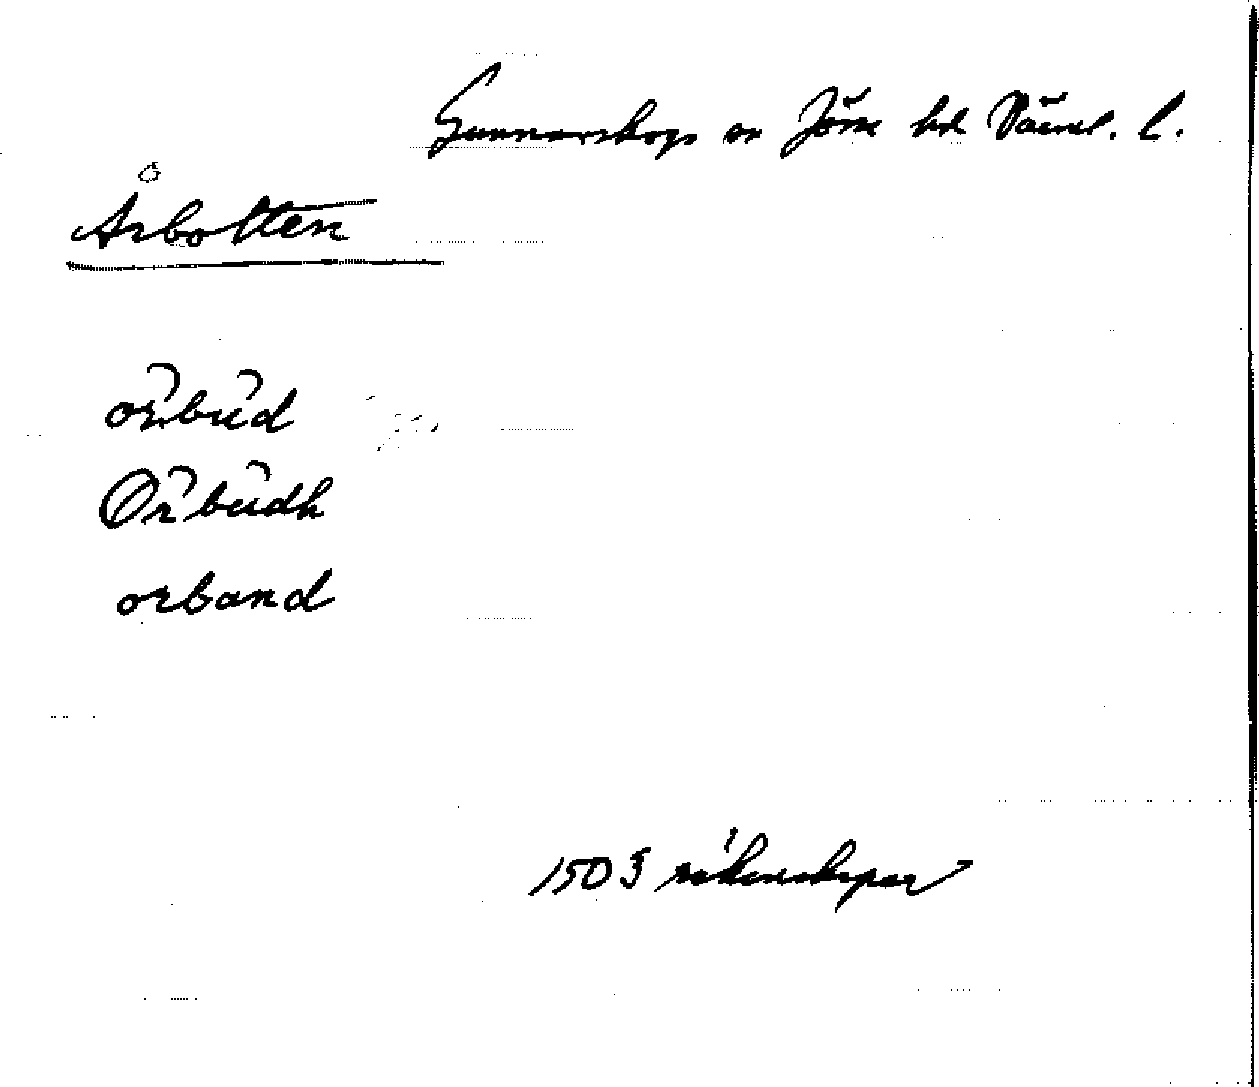 Gunnarskogs sn Jösse hd Värml. l.
Årbotten
orbud
Ørbudh
orband
1503 räkenskaper